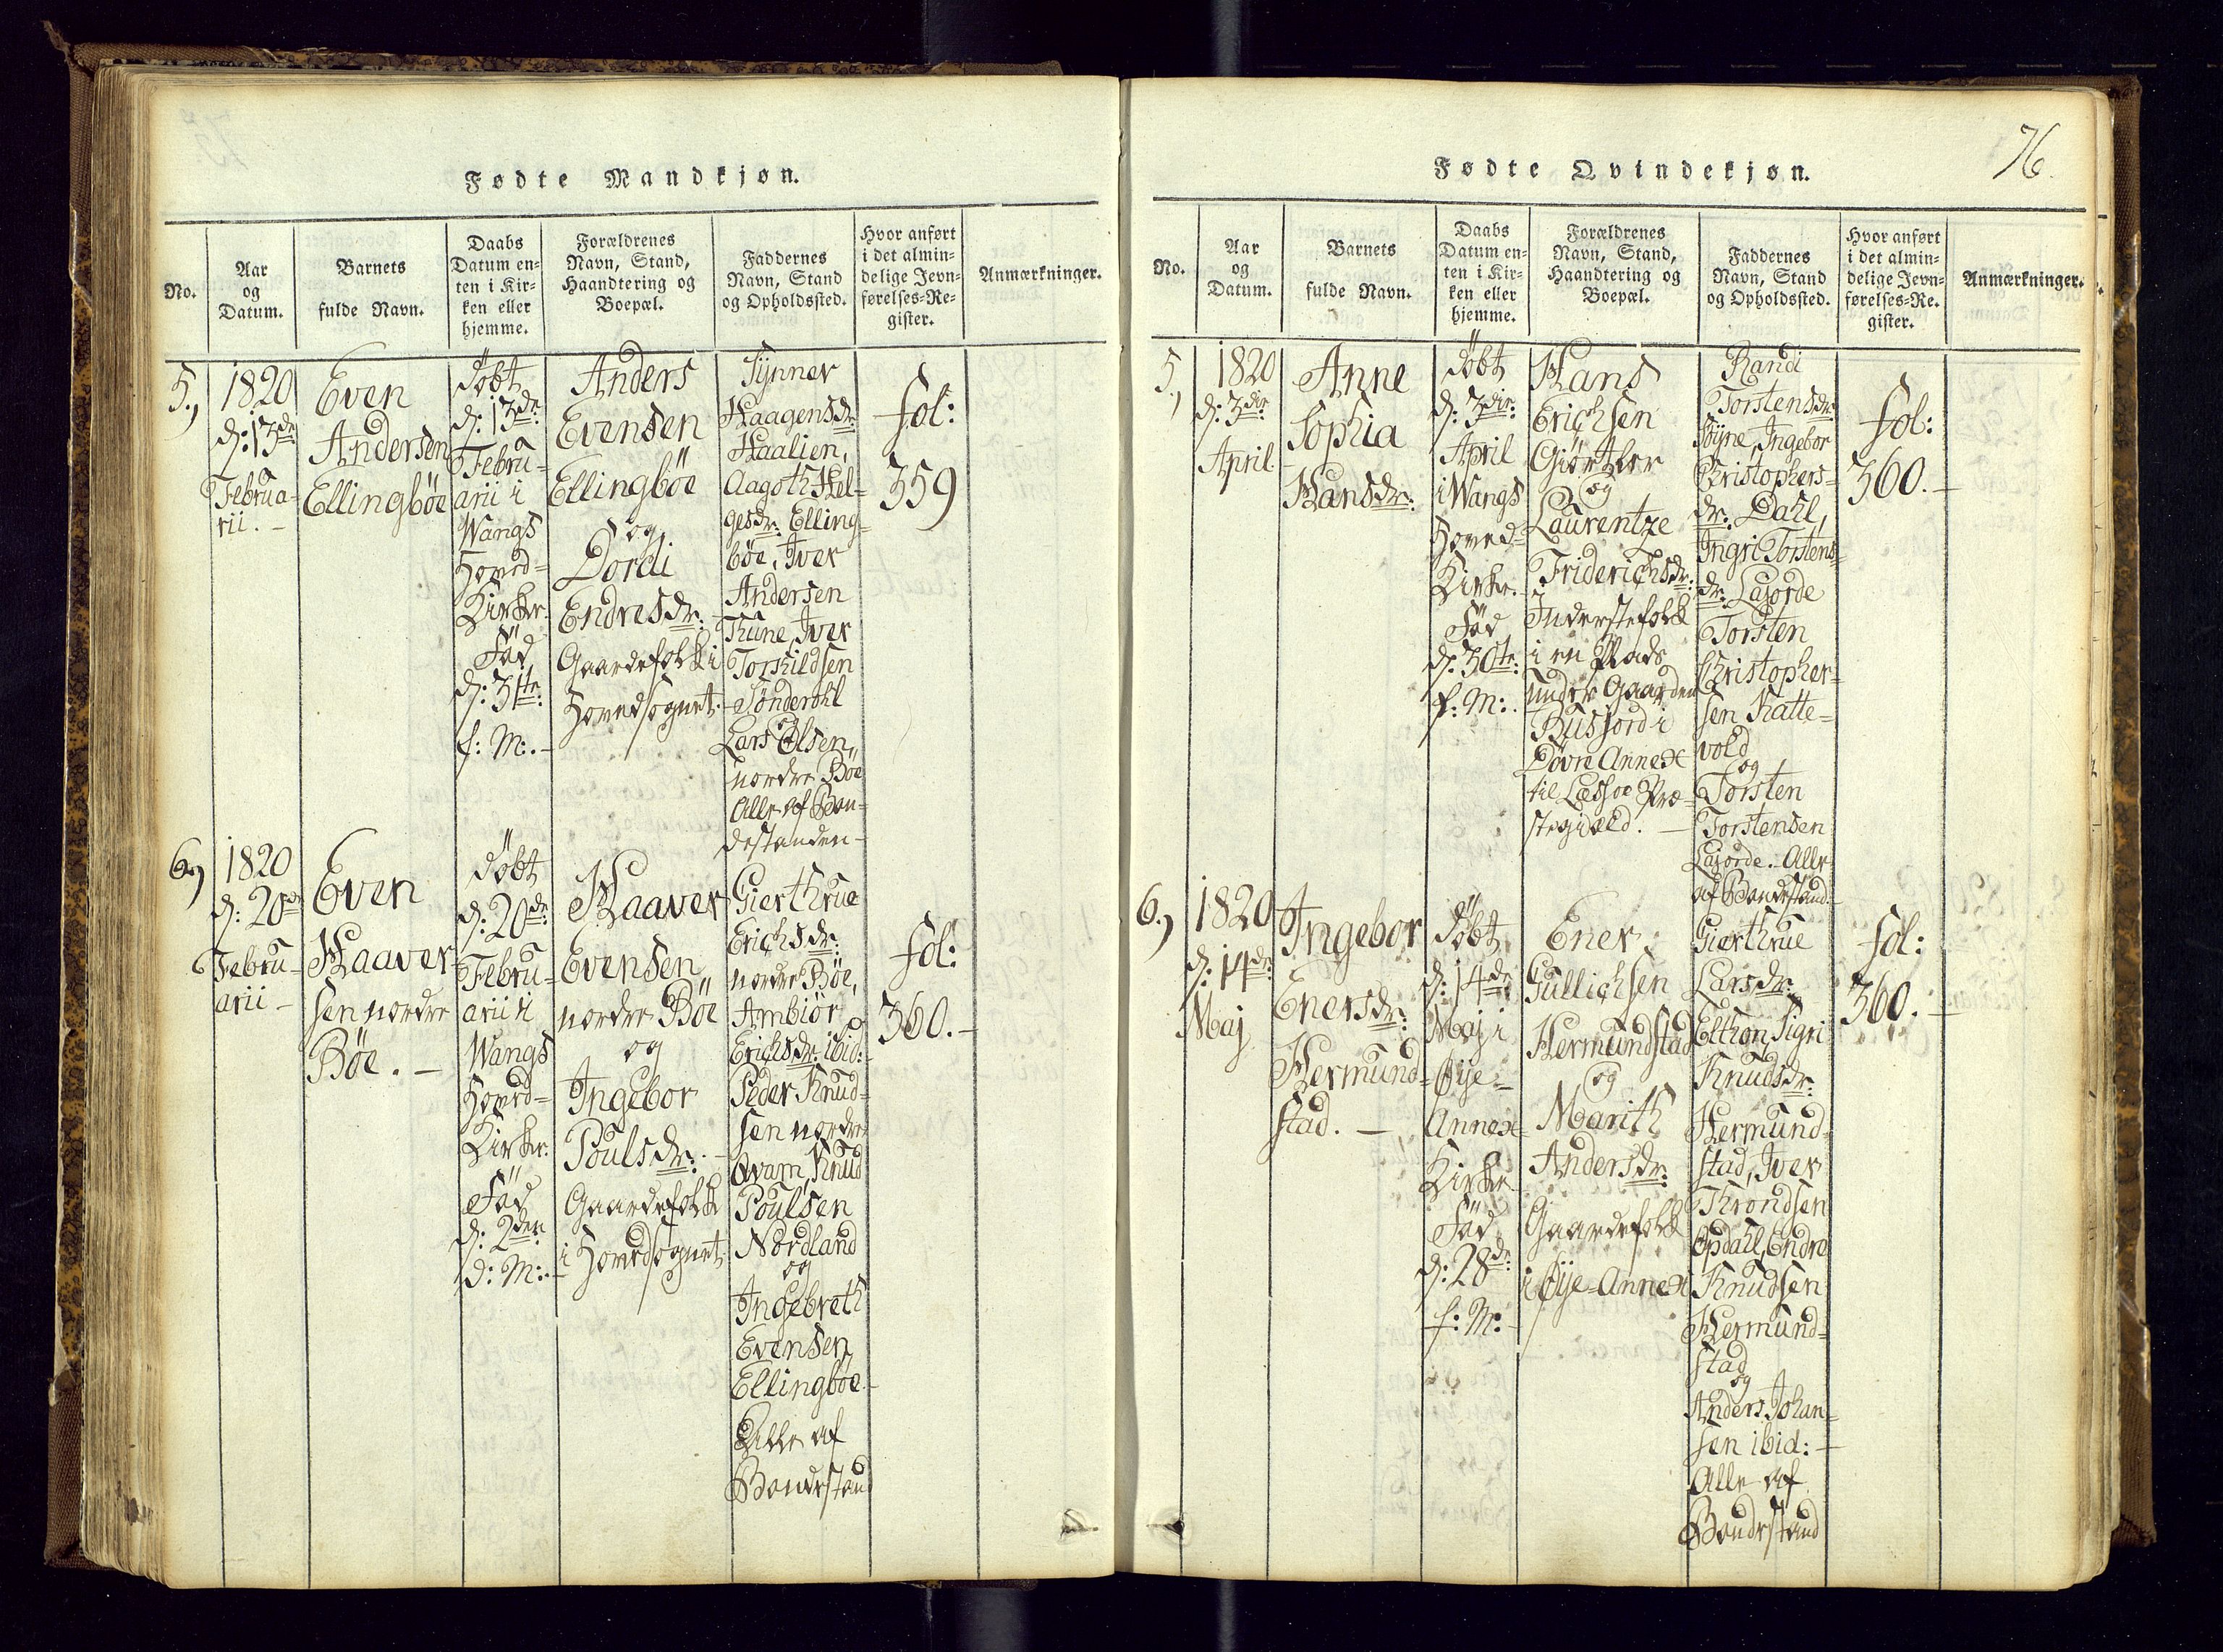 Fødte Mandkjøn.
No.
Aar
og
Datum.
Barnets
fulde Navn.
Daabs
Datum en-
ten i Kir-
ken eller
hjemme.
Forældrenes
Navn, Stand,
Haandtering og
Boepæl.
Faddernes
Navn, Stand
og Opholdssted.
Hvor anført
i det almin-
delige Jevn-
førelses-Re-
gister.
Anmærkninger.
5.,
1820
d: 13de
Februa-
rii. -
Even
Andersen
Ellingböe
döbt
d: 13de
Febru-
arii i
Wangs
Hoved-
Kirke.
Föd
d: 31te
f: M:. -
Anders
Evensen
Ellingböe
og
Dordi
Endresdr: -
Gaardefolk i
Hovedsognet.
Synner
Haagensdr:
Haalien,
Aagoth Hel-
gesdr: Elling-
böe, Iver
Andersen
Thune, Iver
Torkildsen
Lars Olsen,
nordre Böe
Alle af Bon-
destanden -
fol:
359
6.,
1820
d: 20de
Febru-
arii -
Even
Haaver-
sen nordre
Böe. -
döbt
d: 20de
Febru-
arii i
Wangs
Hoved-
Kirke.
Föd
d: 2den
d: M:. -
Haaver
Evensen
nordre Böe
og
Ingebor
Poulsdr:. -
Gaardefolk
i Hovedsognet.
Gierthrue
Erichsdr:
nordre Böe,
Ambiör
Erichsdr: ibid:
Peder Knud-
sen nordre
Qvam, Knud
Poulsen
Nordland
og
Ingebreth
Evensen
Ellingböe. -
Alle af
Bondestand
fol:
360. -
Fødte Qvindekjøn.
76.
No.
Aar
og
Datum.
Barnets
fulde Navn.
Daabs
Datum en-
ten i Kir-
ken eller
hjemme.
Forældrenes
Navn, Stand,
Haandtering og
Boepæl.
Faddernes
Navn, Stand
og Opholdssted.
Hvor anført
i det almin-
delige Jevn-
førelses-Re-
gister.
Anmærkninger.
5.,
1820
d: 3die
April.
Anne
Sophia
Hansdr:
döbt
d: 3die
April
i Wangs
Hoved-
Kirke.
Föd
d: 30te
f: M:.
Hans
Erichsen
Giörtler
og
Laurentze
Friderichsdr:
Inderstefolk
i en Plads
under Gaarden
Bussjord i
Dovre Annex
til Lessoe Præ-
stegiæld. -
Randi
Torstensdr:
Ingebor
Christophers-
dr: Dahl,
Ingri Torstens-
dr: Lajorde
Torsten
Christopher-
sen Katte-
vold
og
Torsten
Torstensen
Lajorde. Alle
af Bondestand.
fol:
360. -
6.,
1820
d: 14de
Maj
Ingebor
Enersdr:
Hermund-
stad. -
döbt
d: 14de
Maj i
Øije-
Annex-
Kirke
Föd
d: 28de
f: M: -
Ener
Gullichsen
Hermundstad
og
Marith
Andersdr:
Gaardefolk
i Øije-Annex
Gierthrue
Larsdr:
Elthon, Sigri
Knudsdr:
Hermund-
stad, Iver
Throndsen
Opdahl, Endre
Knudsen
Hermund-
stad
og
Anders Johan-
sen ibid: -
Alle af
Bondestand
fol:
360. -